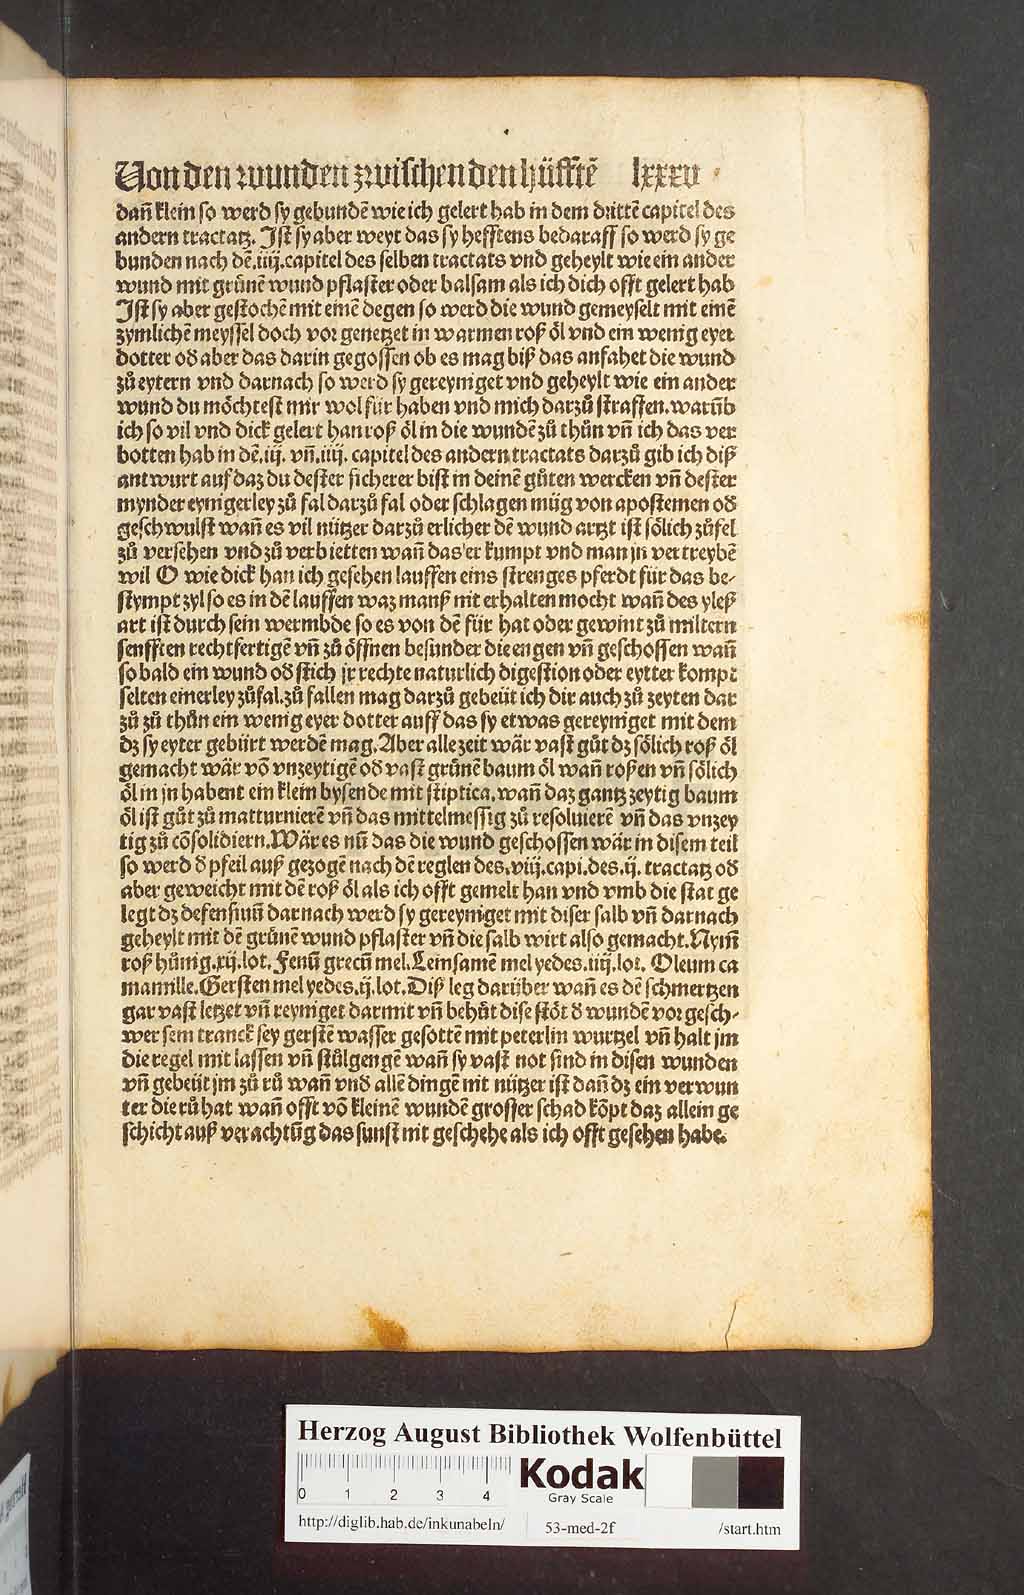 Von den wunden zwischen den hüfftē lxxxv
dañ klein so werd sy gebundē wie ich gelert hab in dem drittē capitel des
andern tractatz. Ist sy aber weyt das sy hefftens bedaraff so werd sy ge
bunden nach dē .iiij. capitel des selben tractats vnd geheylt wie ein ander
wund mit grůnē wund pflaster oder balsam als ich dich offt gelert hab
Ist sy aber gestochē mit einē degen so werd die wund gemeyselt mit einē
zymlichē meyssel doch vor genetzet in warmen roß öl vnd ein wenig eyer
dotter od aber das darin gegossen ob es mag biß das anfahet die wund
zů eytern vnd darnach so werd sy gereyniget vnd geheylt wie ein ander
wund du möchtest mir wol für haben vnd mich darzů straffen. warūb
ich so vil vnd dick gelert han roß öl in die wundē zů thůn vñ ich das ver
botten hab in dē .iij. vñ .iiij. capitel des andern tractats darzů gib ich diß
antwurt auf daz du dester sicherer bist in deinē gůten wercken vñ dester
mynder eynigerley zů fal darzů fal oder schlagen müg von apostemen od
geschwulst wañ es vil nützer darzů erlicher dē wund artzt ist sölich zůfel
zů versehen vnd zů verbietten wañ das er kumpt vnd man jn vertreybē
wil O wie dick han ich gesehen lauffen eins strenges pferdt für das be-
stympt zyl so es in dē lauffen waz manß nit erhalten mocht wañ des yleß
art ist durch sein wermbde so es von dē für hat oder gewint zů miltern
senfften rechtfertigē vñ zů öffnen besunder die engen vñ geschossen wañ
so bald ein wund od stich jr rechte naturlich digestion oder eytter kompt
selten einerley zůfal. zů fallen mag darzů gebeüt ich dir auch zů zeyten dar
zů zů thůn ein wenig eyer dotter auff das sy etwas gereyniget mit dem
dz sy eyter gebürt werdē mag. Aber alle zeit wär vast gůt dz sölich roß öl
gemacht wär vō vnzeytigē od vast grůnē baum öl wañ roßen vñ sölich
öl in jn habent ein klein bysende mit stiptica. wañ daz gantz zeytig baum
öl ist gůt zů matturnierē vñ das mittelmessig zů resoluierē vñ das vnzey
tig zů cōsolidiern. Wär es nū das die wund geschossen wär in disem teil
so werd d pfeil auß gezogē nach dē reglen des .viij. capi. des .ij. tractatz od
aber geweicht mit dē roß öl als ich offt gemelt han vnd vmb die stat ge
legt dz defensiuū darnach werd sy gereyniget mit diser salb vñ darnach
geheylt mit dē grůnē wund pflaster vñ die salb wirt also gemacht. Nym̄
roß hůnig .xij. lot. Fenū grecū mel. Leinsamē mel yedes .iiij. lot. Oleum ca
mamille. Gersten mel yedes .ij. lot. Diß leg darüber wañ es dē schmertzen
gar vast letzet vñ reyniget darmit vñ behůt dise stöt d wundē vor gesch-
wer sein tranck sey gerstē wasser gesottē mit peterlin wurtzel vñ halt jm
die regel mit lassen vñ stůlgengē wañ sy vast not sind in disen wunden
vñ gebeüt jm zů rů wañ vnd allē dingē nit nützer ist dañ dz ein verwun
ter die rů hat wañ offt vō kleinē wundē grosser schad kōpt daz allein ge
schicht auß verachtūg das sunst nit geschehe als ich offt gesehen habe.
Herzog August Bibliothek Wolfenbüttel
0 1 2 3 4
Kodak
Gray Scale
http://diglib.hab.de/inkunabeln/ 53-med-2f /start.htm